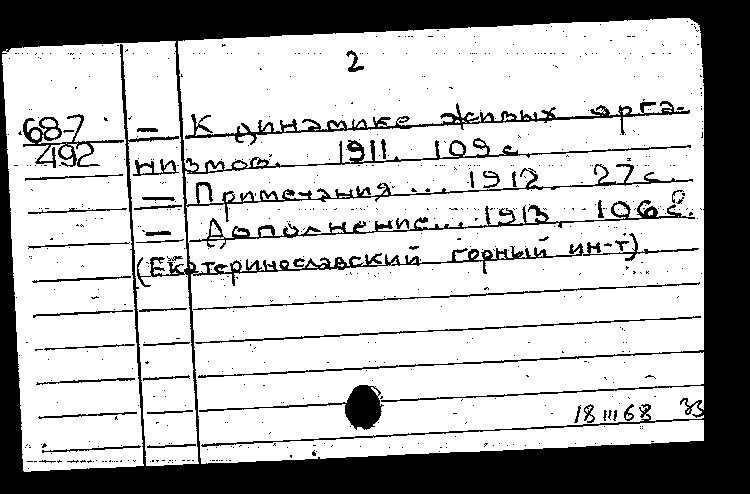 2
68-7 — К динамике живых орга-
492 низмов. 1911. 109 с.
— Примечания ... 1912. 27 с.
— Дополнение... 1913. 106 с.
(Екатеринославский горный ин-т).
18 III 68 ЗЗ